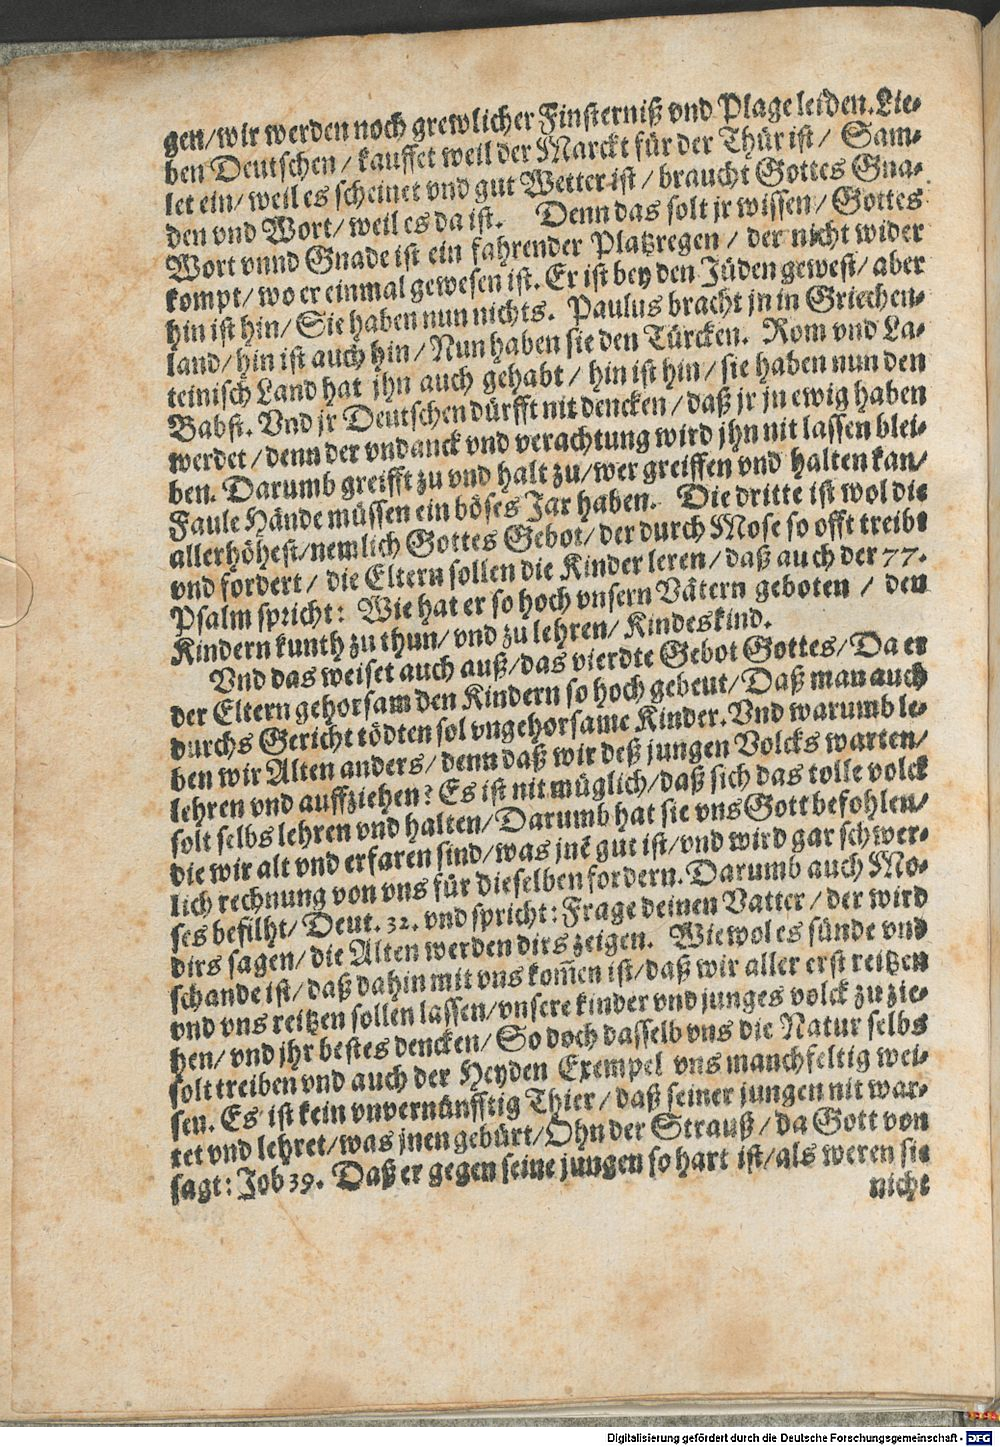 gen/wir werden noch grewlicher Finsterniß vnd Plage leiden. Lie-
ben Deutschen / kauffet weil der Marckt für der Thür ist / Sam-
let ein/ weil es scheinet vnd gut Wetter ist / braucht Gottes Gna-
den vnd Wort/ weil es da ist. Denn das solt jr wissen / Gottes
Wort vnnd Gnade ist ein fahrender Platzregen / der nicht wider
kompt/ wo er einmal gewesen ist. Er ist bey den Jüden gewest/ aber
hin ist hin/ Sie haben nun nichts. Paulus bracht jn in Griechen-
land/ hin ist auch hin / Nun haben sie den Türcken. Rom vnd La-
teinisch Land hat jhn auch gehabt / hin ist hin / sie haben nun den
Babst. Vnd jr Deutschen dürfft nit dencken / daß jr jn ewig haben
werdet / denn der vndanck vnd verachtung wird jhn nit lassen blei-
ben. Darumb greifft zu vnd halt zu/ wer greiffen vnd halten kan/
Faule Hände müssen ein böses Jar haben. Die dritte ist wol die
allerhöhest/nemlich Gottes Gebot/ der durch Mose so offt treibt
vnd fordert / die Eltern sollen die Kinder leren / daß auch der 77.
Psalm spricht: Wie hat er so hoch vnsern Vätern geboten / den
Kindern kunth zu thun/ vnd zu lehren/ Kindeskind.
Vnd das weiset auch auß/das vierdte Gebot Gottes/ Da er
der Eltern gehorsam den Kindern so hoch gebeut/ Daß man auch
durchs Gericht tödten sol vngehorsame Kinder. Vnd warumb le-
ben wir Alten anders/ denn daß wir deß jungen Volcks warten/
lehren vnd auffziehen? Es ist nit müglich/daß sich das tolle volck
solt selbs lehren vnd halten/ Darumb hat sie vns Gott befohlen/
die wir alt vnd erfaren sind/was jnē gut ist/vnd wird gar schwer-
lich rechnung von vns für dieselben fordern. Darumb auch Mo-
ses befilht/ Deut. 32. vnd spricht: Frage deinen Vatter / der wird
dirs sagen/ die Alten werden dirs zeigen. Wiewol es sünde vnd
schande ist/ daß dahin mit vns kom̄en ist/daß wir aller erst reitzen
vnd vns reitzen sollen lassen/vnsere kinder vnd junges volck zu zie-
hen/ vnd jhr bestes dencken/ So doch dasselb vns die Natur selbs
solt treiben vnd auch der Heyden Exempel vns manchfeltig wei-
sen. Es ist kein vnvernünfftig Thier / daß seiner jungen nit war-
tet vnd lehret/was jnen gebürt/Ohn der Strauß / da Gott von
sagt: Job 39. Daß er gegen seine jungen so hart ist/als weren sie
nicht
Digitalisierung gefördert durch die Deutsche Forschungsgemeinschaft - DFG